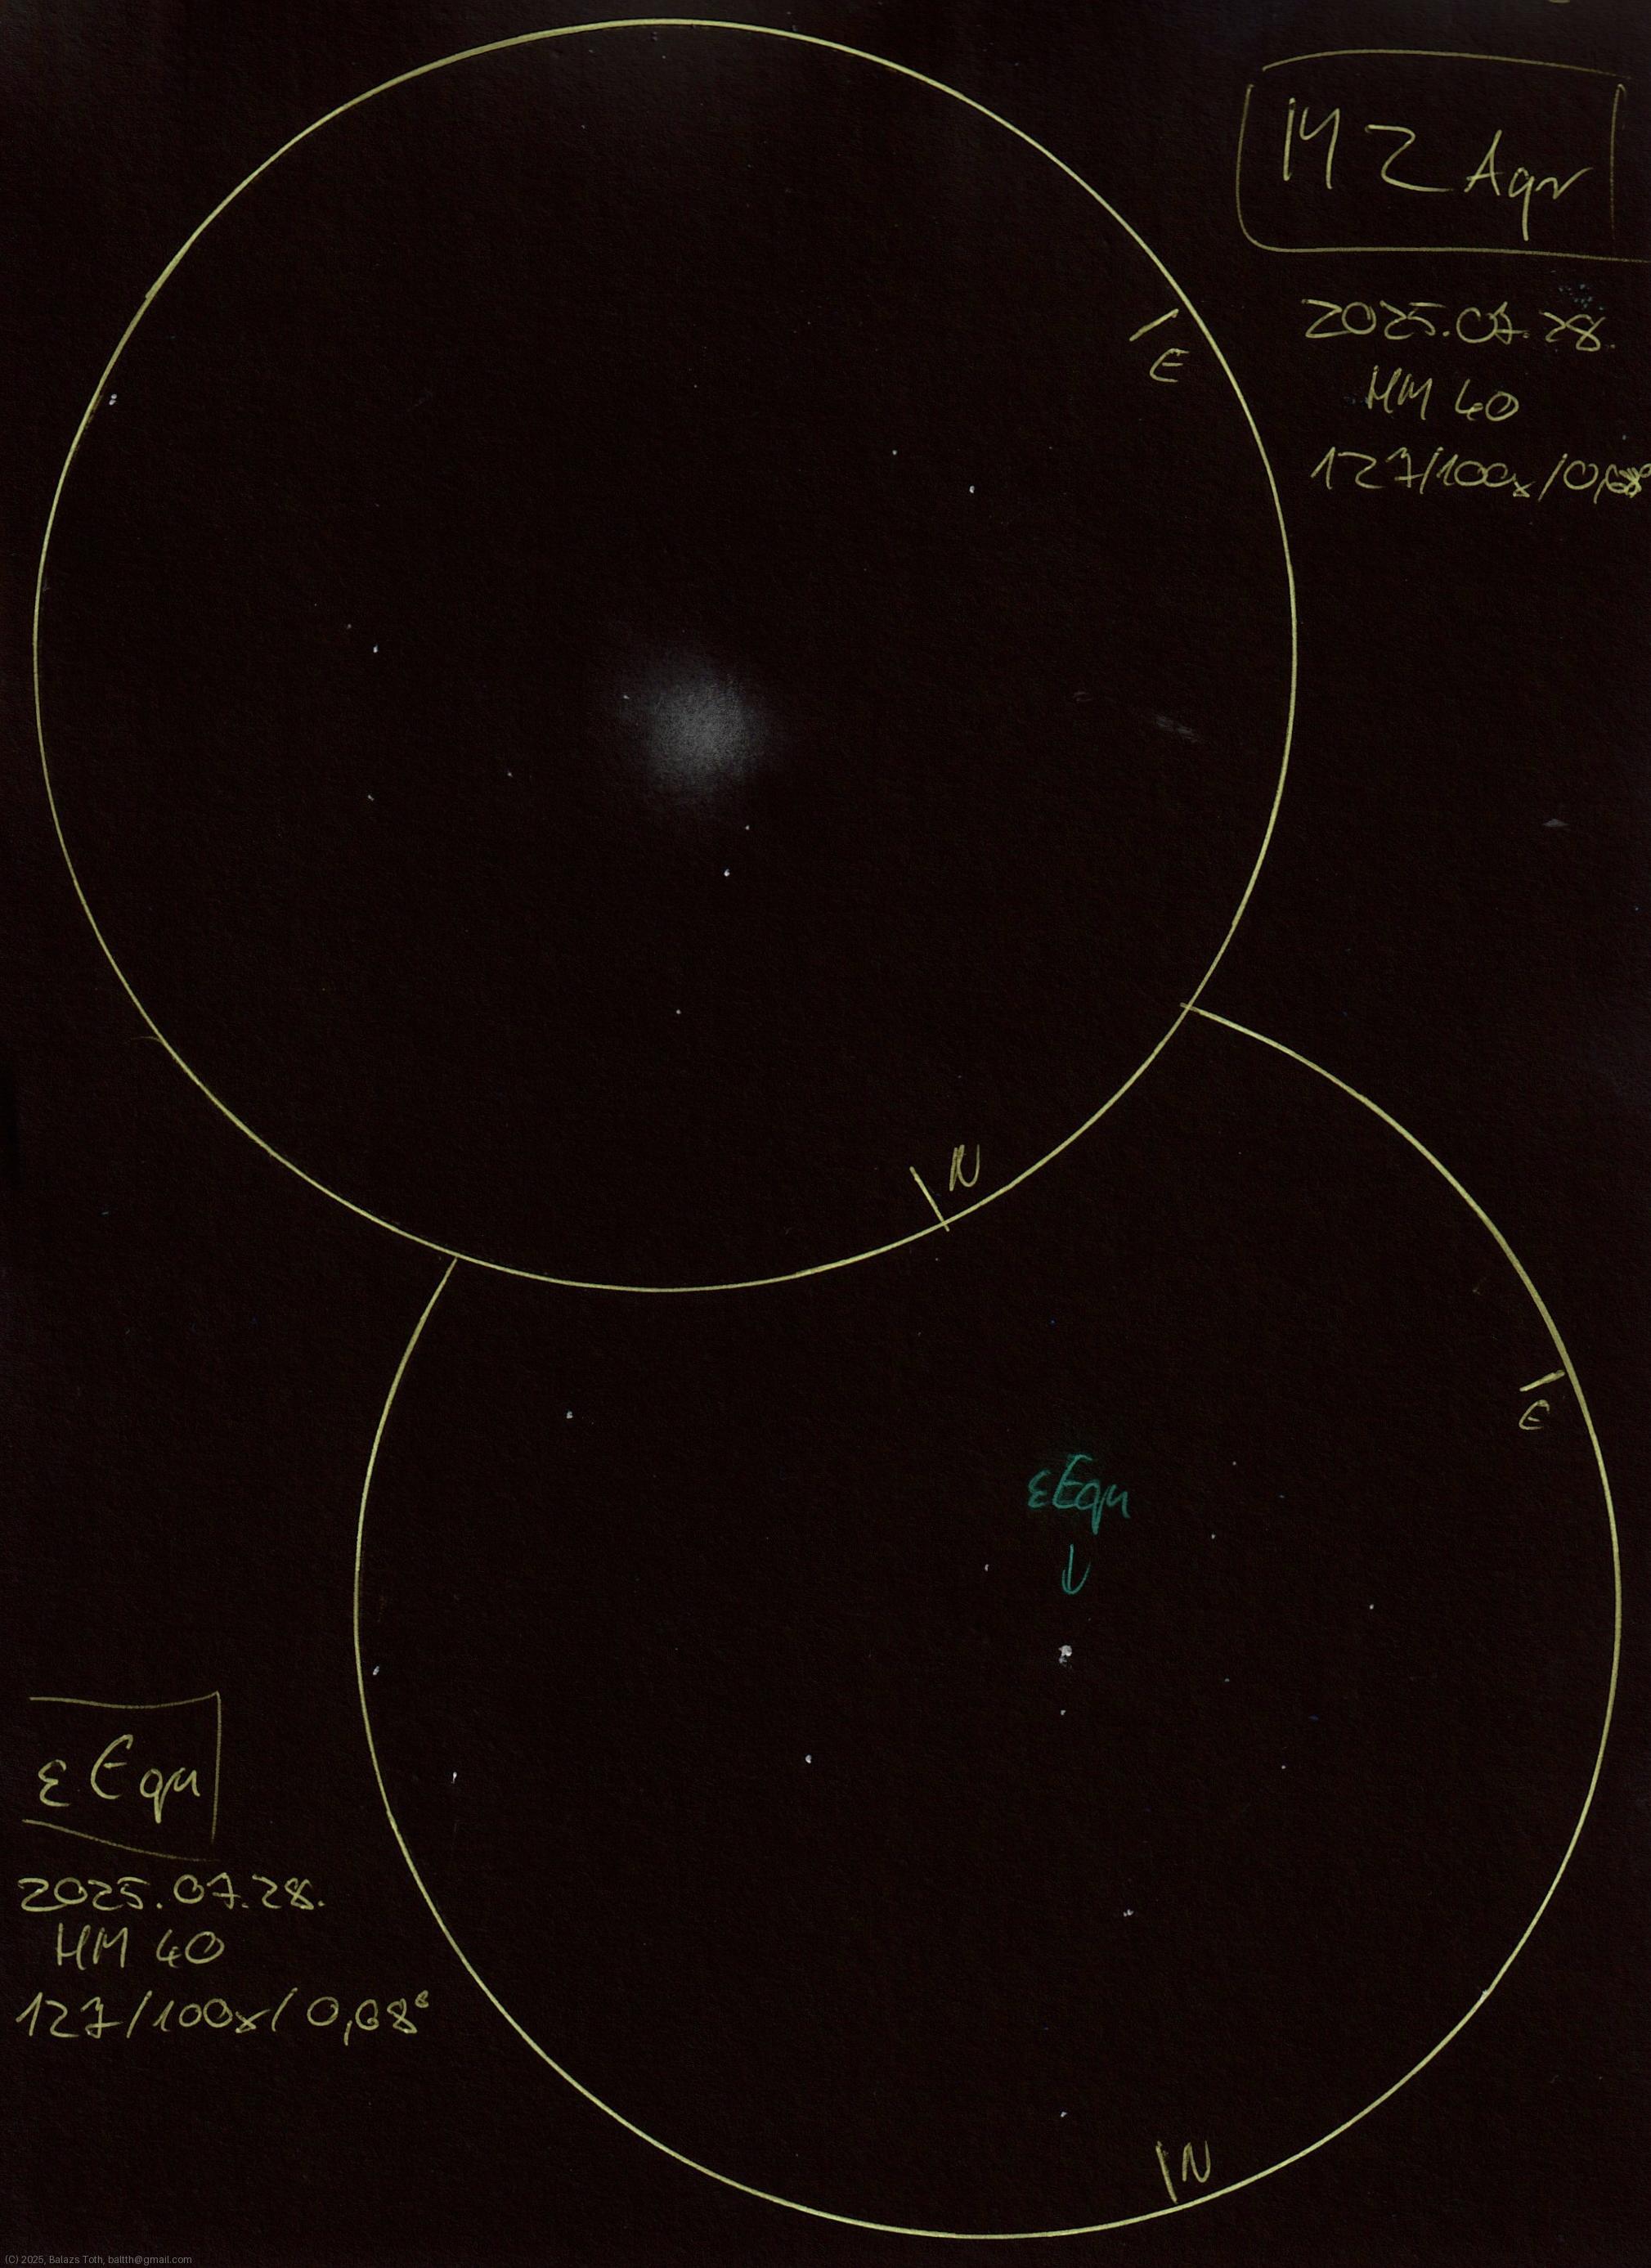 M2 Aqr
2025.07.28.
HM 40
127/100x/0,68°
E
N
E
εEqu
↓
ε Equ
2025.07.28.
HM 40
127/100x/0,68°
N
(C) 2025, Balazs Toth, baltth@gmail.com